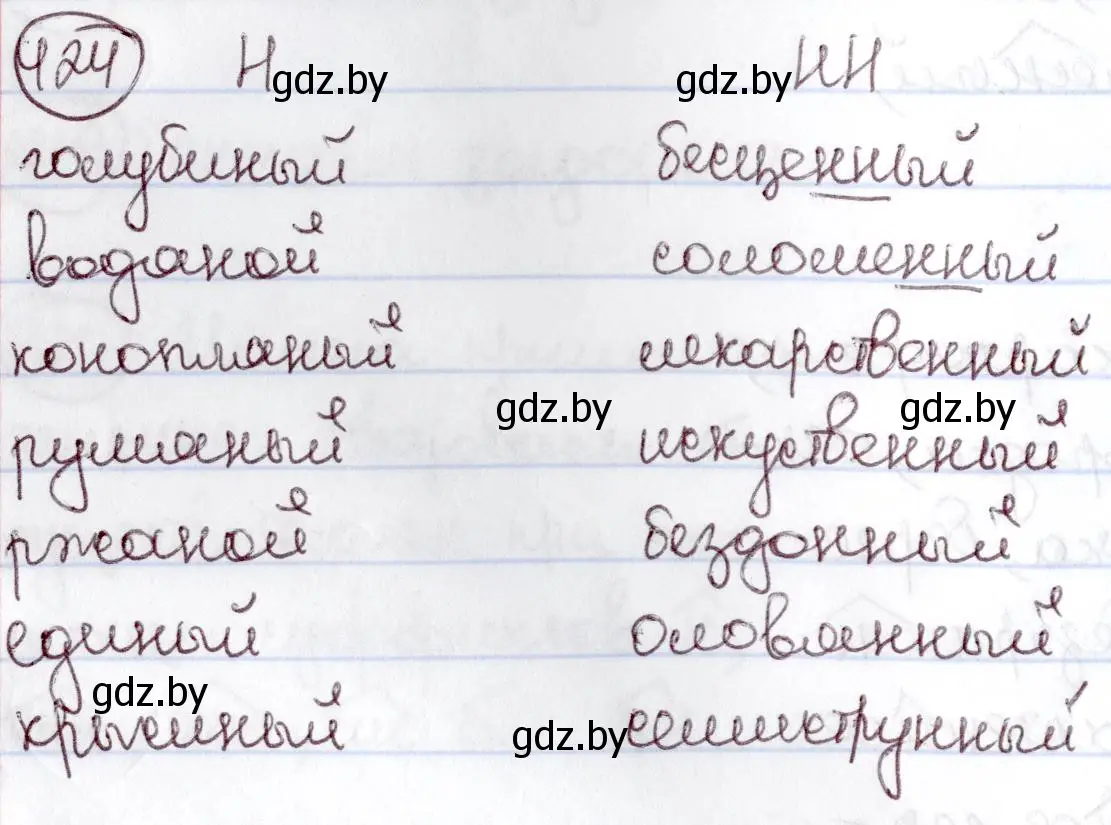 424 Н gdz.by gdz.by НН
голубиный бесценный
водяной соломенный
конопляный лекарственный
gdz.by gdz.by
румяный искуственный
ржаной бездонный
единый оловянный
gdz.by
крысиный gdz.by семиструнный